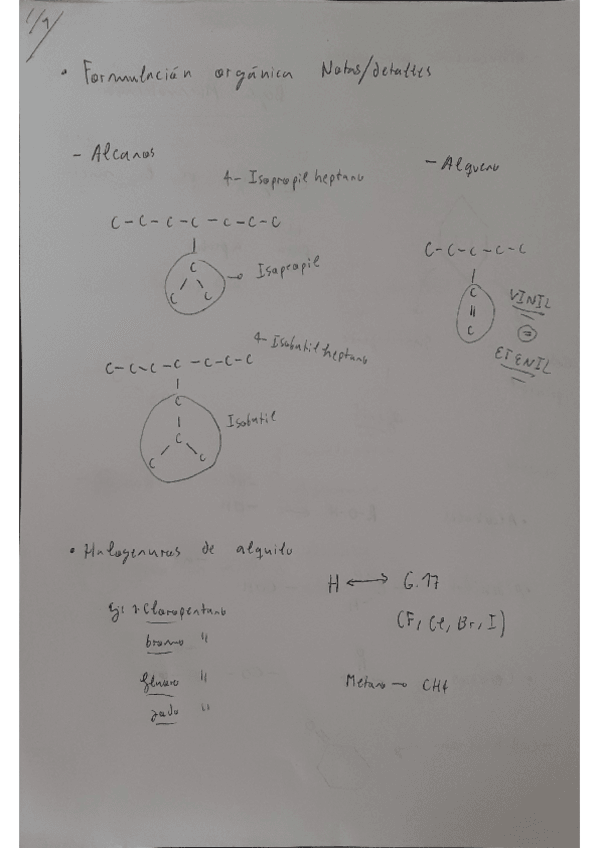 1/9
• Formulación orgánica Notas/detalles
- Alcanos
4- Isopropil heptano
C-C-C-C-C-C-C
C
C C
Isopropil
4- Isobutil heptano
C-C-C-C-C-C-C
C
C
C C
Isobutil
- Alqueno
C-C-C-C-C
C
C
VINIL
=
ETENIL
• Halogenuros de alquilo
H ↔ G.17
(F, Cl, Br, I)
Ej: 1-Cloropentano
bromo "
fluoro "
yodo "
Metano → CH4